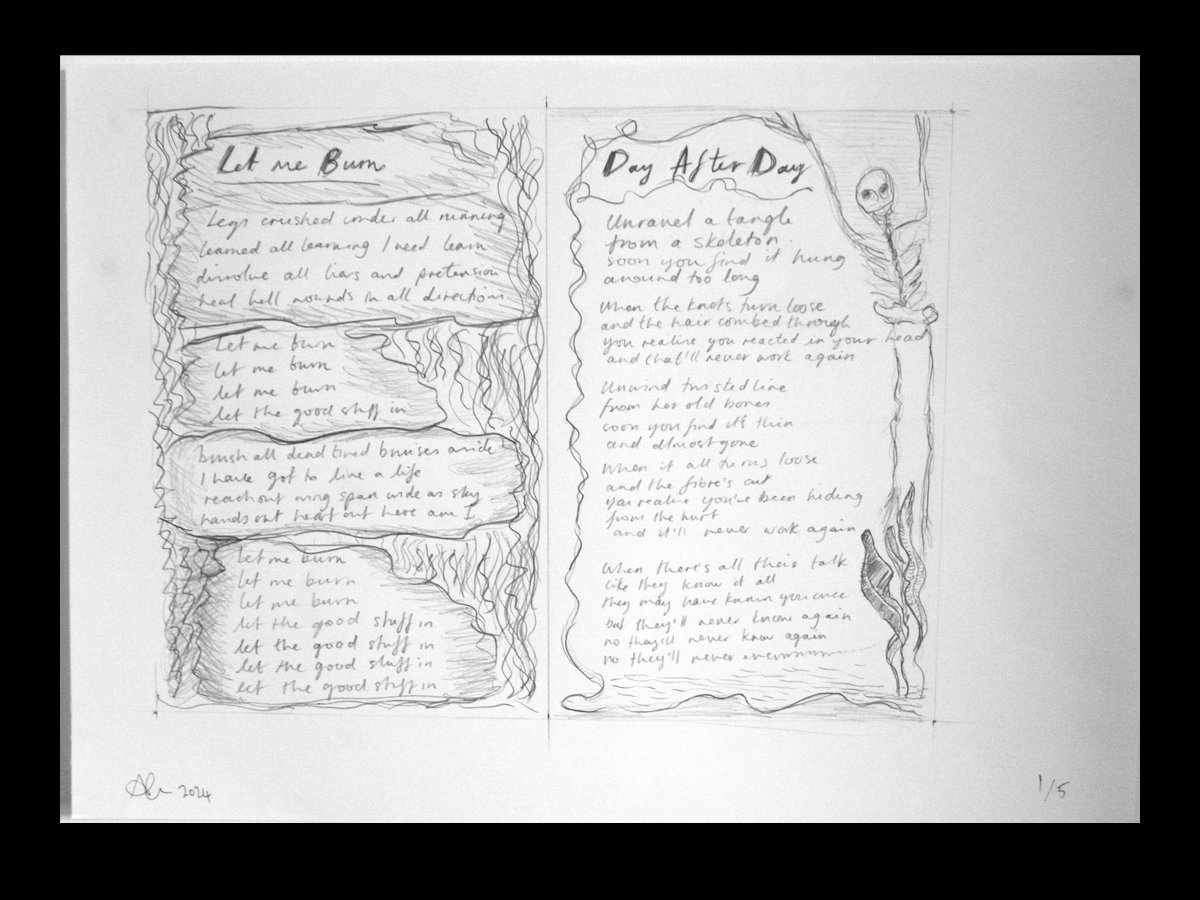 Let me Burn
Legs crushed under all running
learned all learning I need learn
dissolve all liars and pretension
heal hell wounds in all directions
let me burn
let me burn
let me burn
let the good stuff in
brush all dead tired bruises aside
I have got to live a life
reach out wing span wide as sky
hands out heart out here am I
let me burn
let me burn
let me burn
let the good stuff in
let the good stuff in
let the good stuff in
let the good stuff in
Day After Day
Unravel a tangle
from a skeleton
soon you find it hung
around too long
When the knots turn loose
and the hair combed through
you realise you reacted in your head
and that'll never work again
Unwind twisted line
from her old bones
soon you find it's thin
and almost gone
When it all turns loose
and the fibre's cut
you realise you've been hiding
from the hurt
and it'll never work again
When there's all their talk
like they know it all
they may have known you once
but they'll never know again
no they'll never know again
no they'll never
2024
1/5